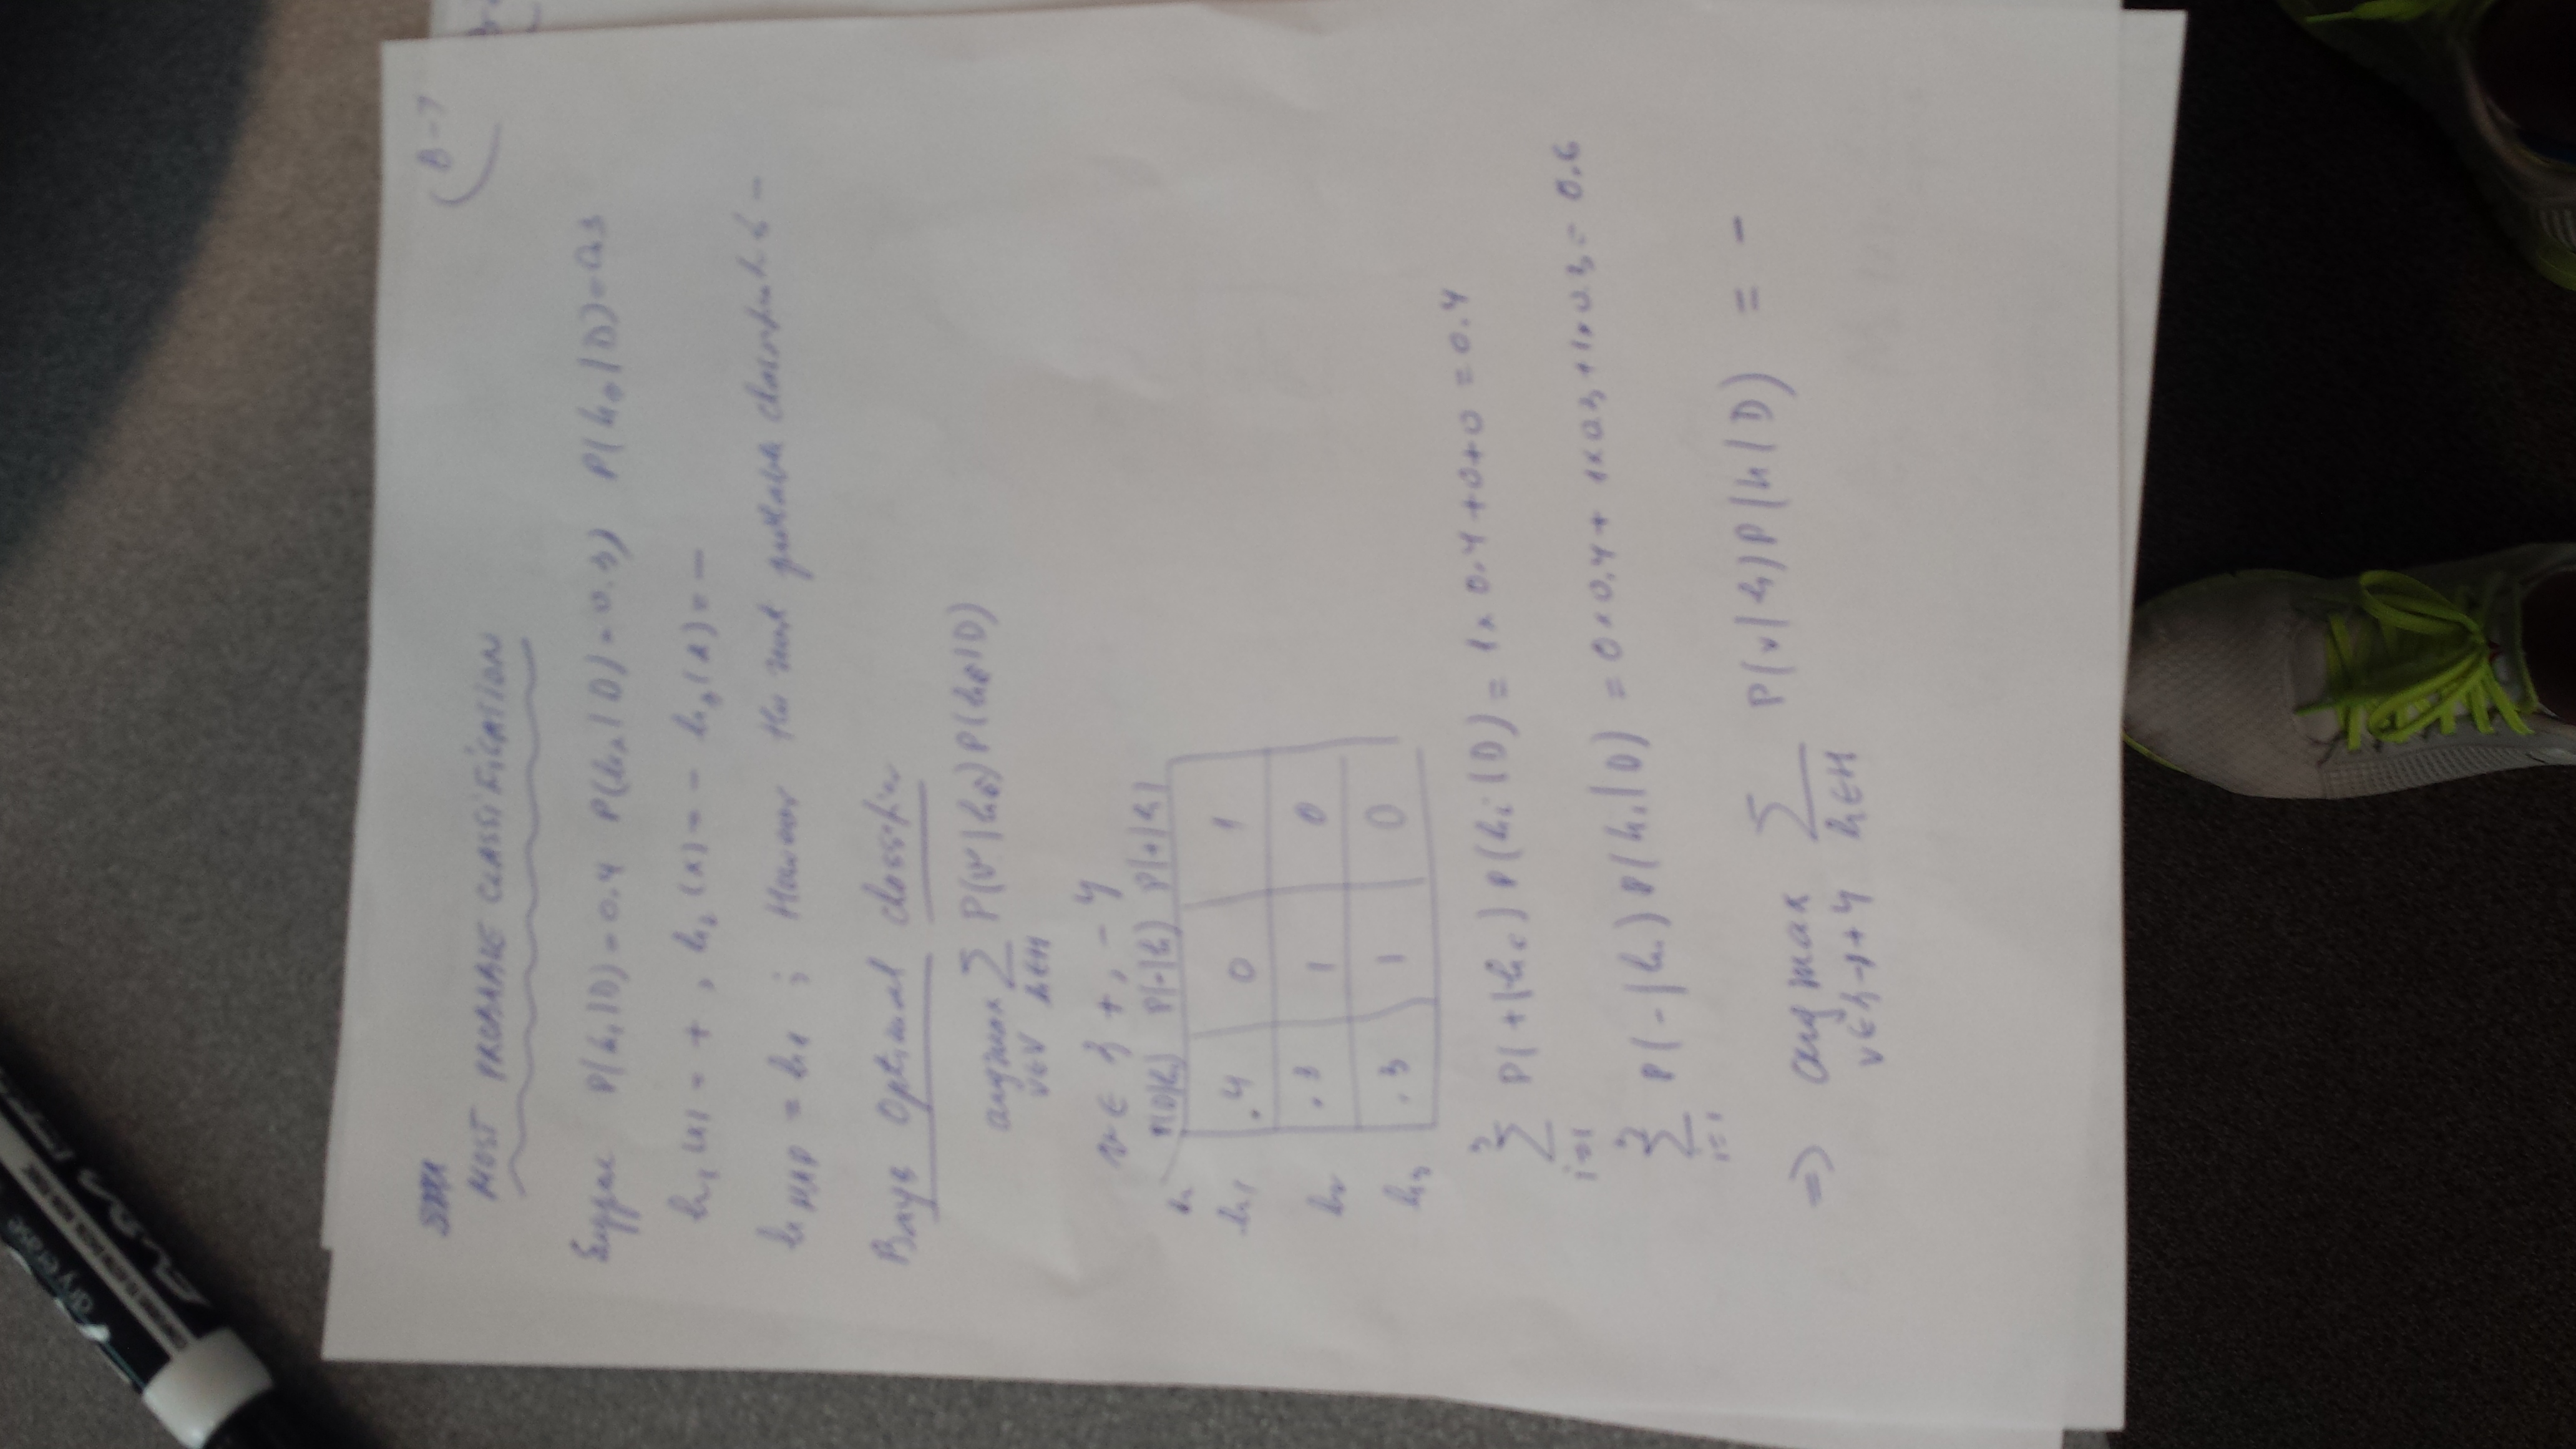 dry erase
B-7
MOST PROBABLE CLASSIFICATION
Suppose P(h₁|D)=0.4 P(h₂|D)=0.3) P(h₃|D)=0.3
h₁(x) = + , h₂(x) = - h₃(x) = -
h MAP = h1 ; However the most probable classificat is -
Bayes Optimal classifier
argmax Σ P(v|hi) P(hi|D)
v∈V h∈H
v ∈ { +, - }
P(D|h) P(-|h) P(+|h)
h1 .4 0 1
h2 .3 1 0
h3 .3 1 0
3
Σ P(+|hi) P(hi|D) = 1x0.4+0+0 = 0.4
i=1
3
Σ P(-|hi) P(hi|D) = 0x0.4+ 1x0.3+1x0.3= 0.6
i=1
=> argmax Σ P(v|h)P(h|D) = -
v∈{-,+} h∈H